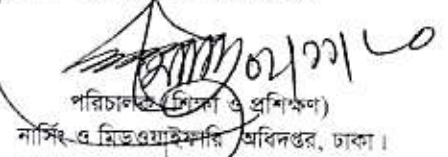 পরিচালক (শিক্ষা ও প্রশিক্ষণ)
নার্সিং ও মিডওয়াইফারি অধিদপ্তর, ঢাকা।